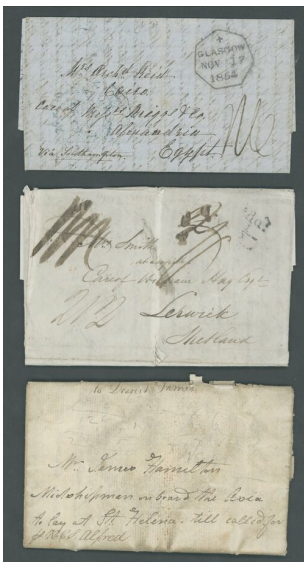 GLASGOW
NOV 17
1864
Mr Archd Reid
Cairo
Care of Messrs Briggs & Co
Alexandria
Egypt
Via Southampton
Mr Smith
Care of William Hay Esqr
Lerwick
Shetland
to David James
Mr James Hamilton
Midshipman on board the
to lay at St Helena till called for
Alfred